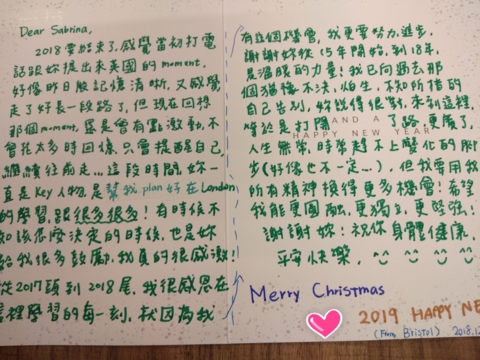 Dear Sabrina,
2018要結束了，感覺當初打電
話跟妳提出來英國的moment，
好像昨日般記憶清晰，又感覺
走了好長一段路了，但現在回想
那個moment，還是會有點激動，不
會花太多時回憶，只會提醒自己，
繼續往前走…這段時間，妳一
直是key人物，是幫我plan好在London
的學習，跟很多很多！有時候不
知該怎麼決定的時候，也是妳
給我很多鼓勵，我真的很感激！
從2017頭到2018尾，我很感恩在
這裡學習的每一刻，就因為我
有這個機會，我更要努力，進步，
謝謝妳從15年開始，到18年，
是滿眼的力量！我已向過去那
個猶豫不決，怕生，不知所措的
自己告別，妳說得很對，來到這裡，
等於是打開 了路更廣了，
AND A
HAPPY NEW YEAR
人生無常，時常趕不上變化的腳
步（好像也不一定…），但我要用我
所有精神換得更多機會！希望
我能更圓融，更獨立，更堅強！
謝謝妳！祝你身體健康，
平安快樂，
Merry Christmas
2019 HAPPY NE
(From Bristol) 2018.12